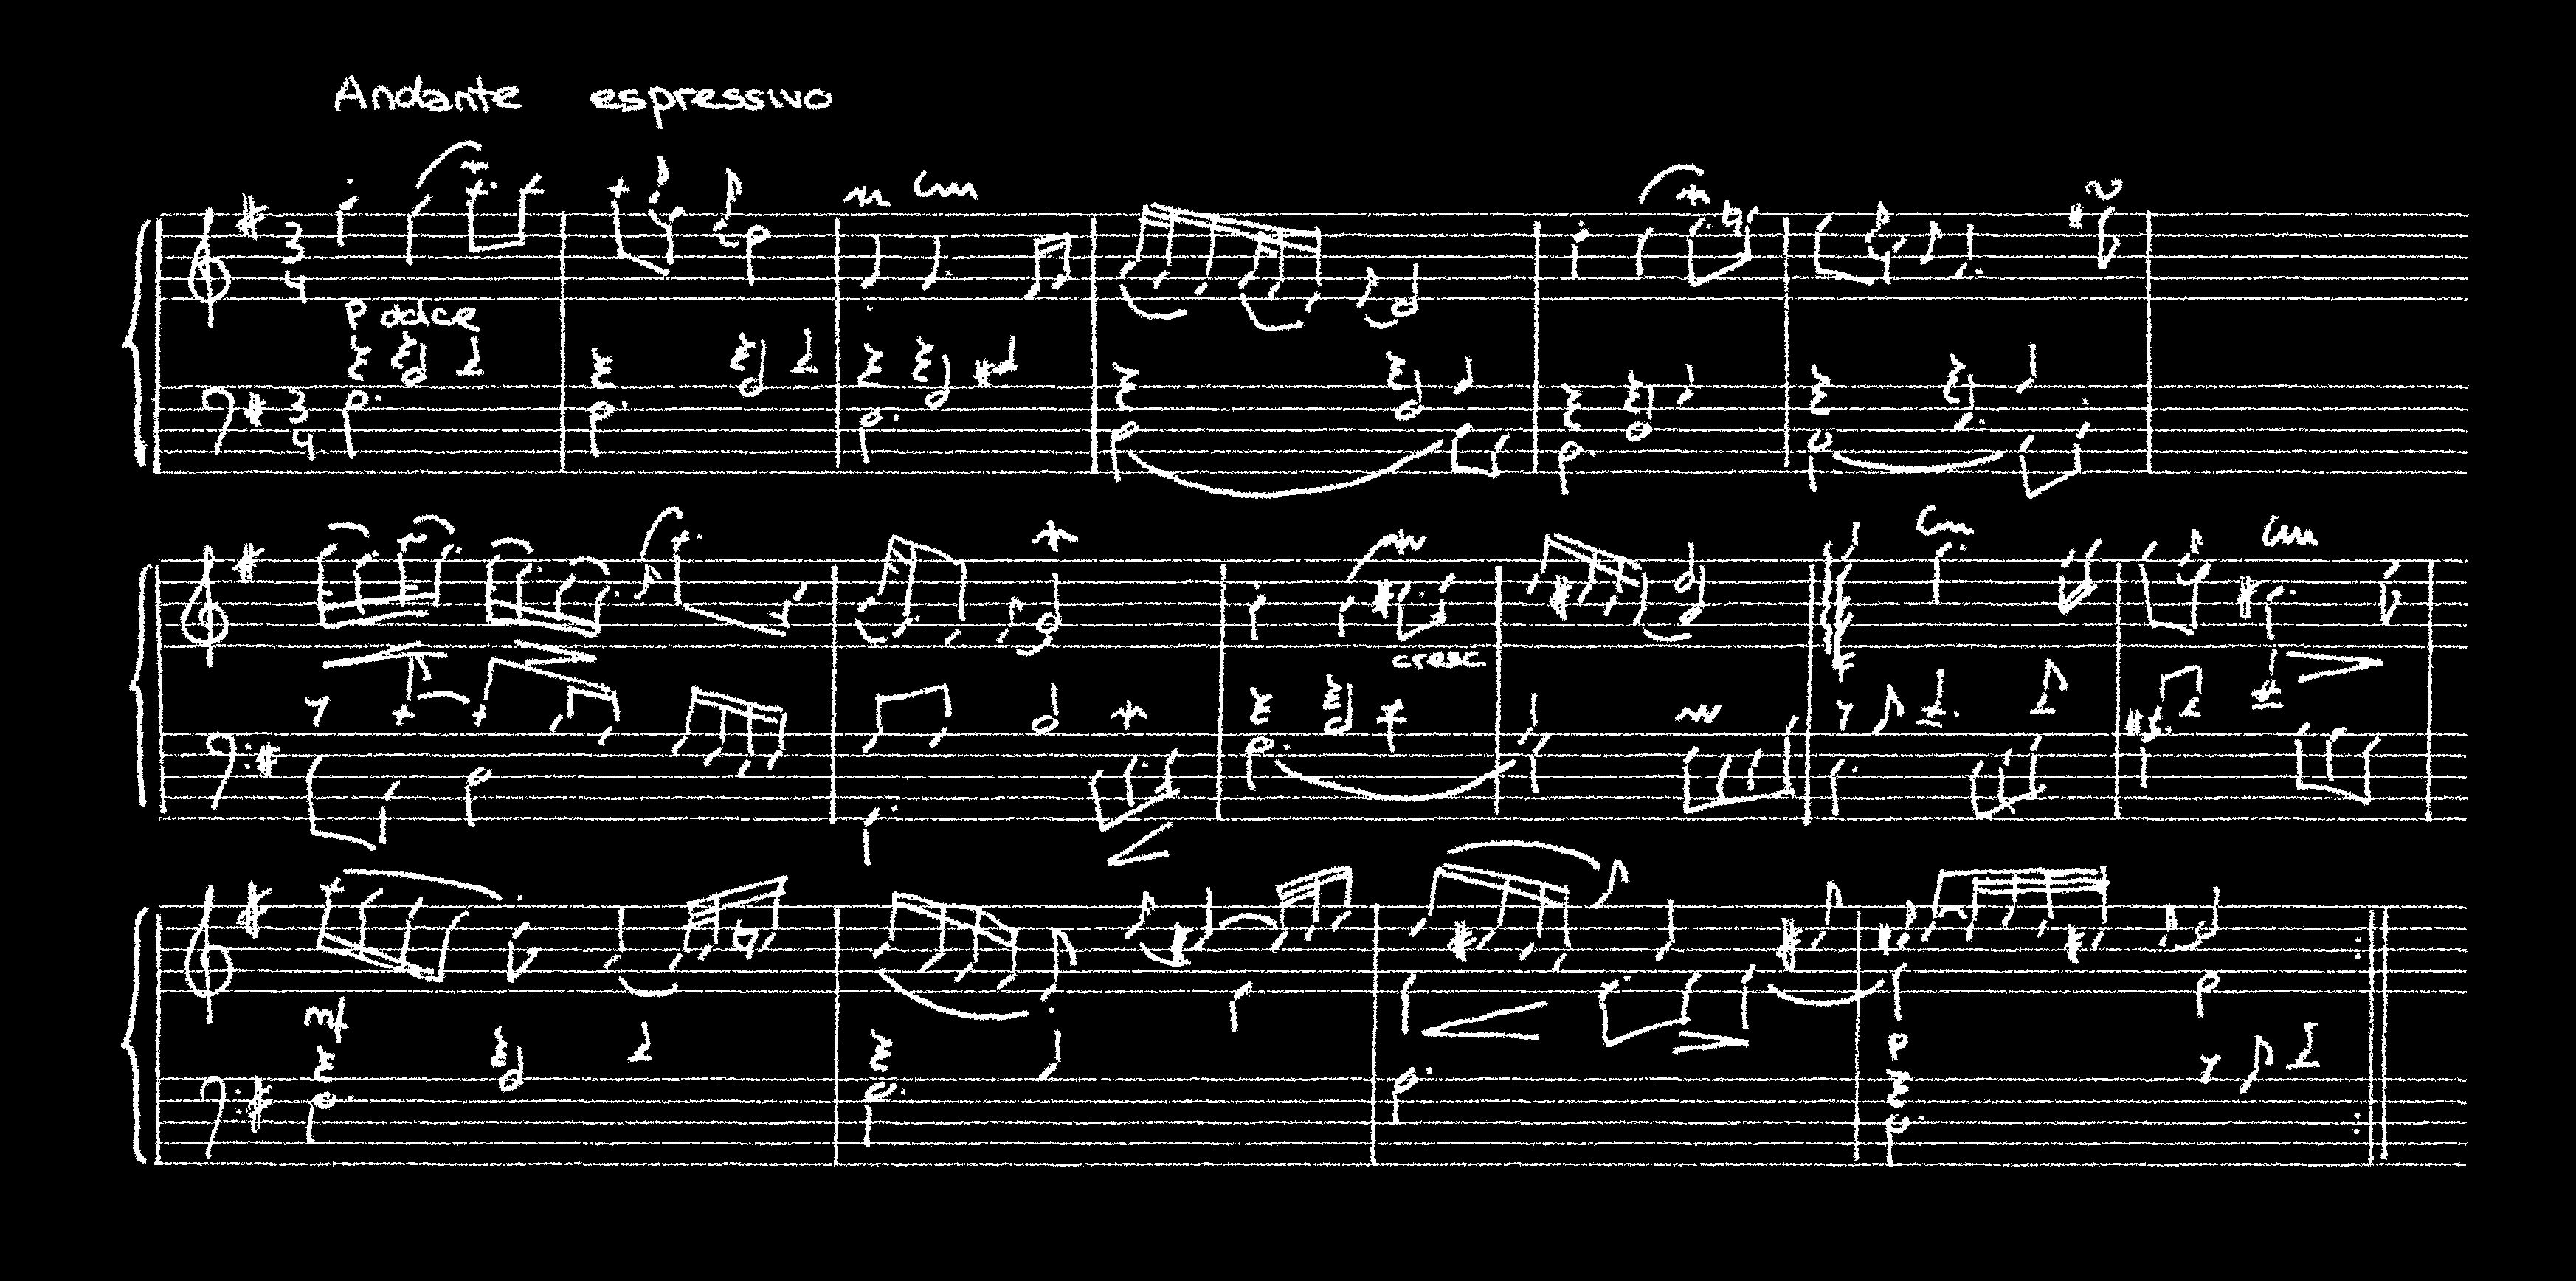 Andante espressivo
3 4
P dolce
3 4
cresc
f
mf
P